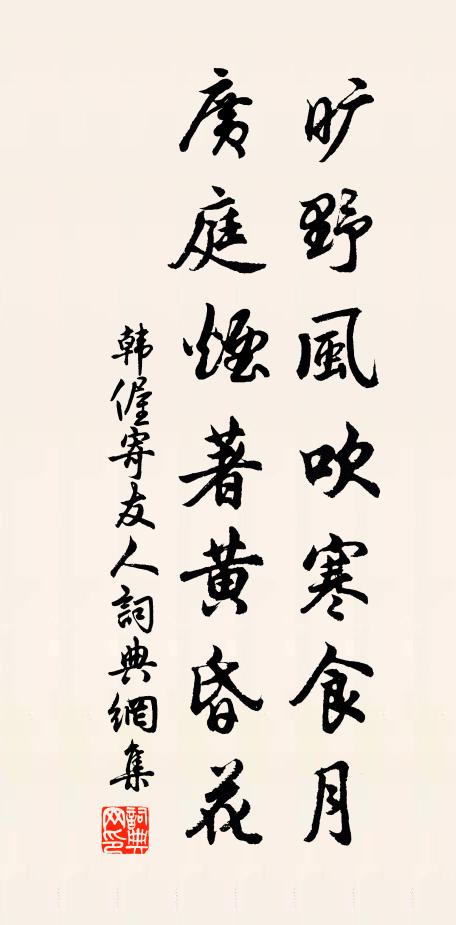 旷野風吹寒食月
廣庭煙著黄昏花
韩偓寄友人詞典網集
詞典网印